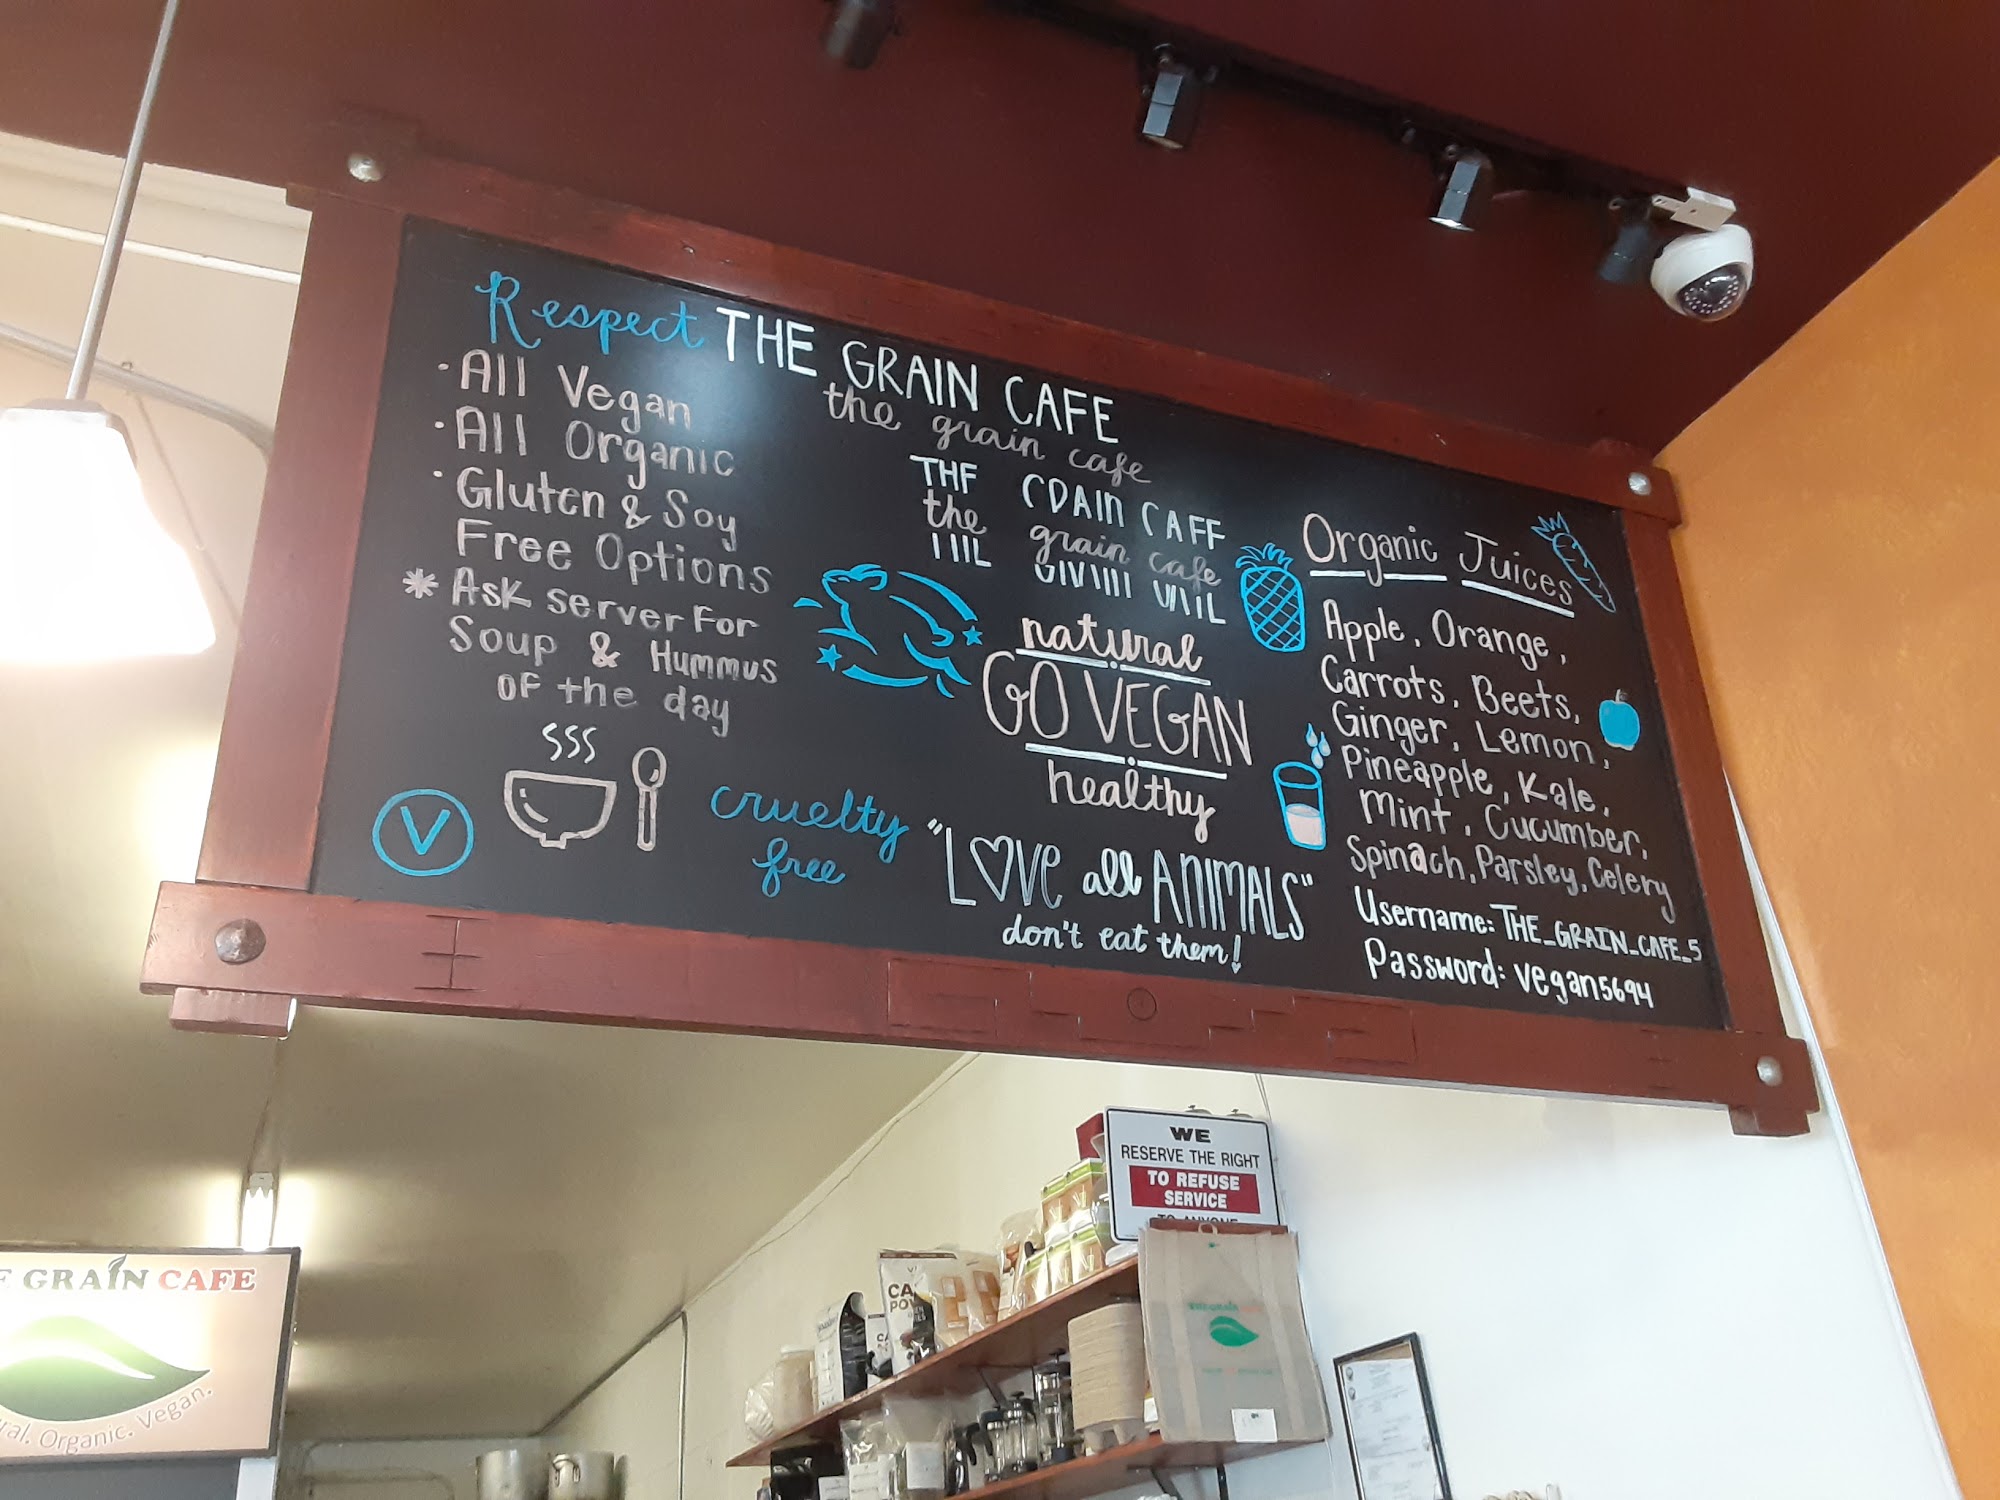 Respect THE GRAIN CAFE
the grain cafe
THE GRAIN CAFE
the grain cafe
· All Vegan
· All Organic
· Gluten & Soy
Free Options
* Ask server For
Soup & Hummus
OF the day
V
cruelty
free
natural
GO VEGAN
healthy
"LOVE all ANIMALS"
don't eat them!
Organic Juices
Apple, Orange,
Carrots, Beets,
Ginger, Lemon,
Pineapple, Kale,
Mint, Cucumber,
Spinach, Parsley, Celery
Username: THE_GRAIN_CAFE_5
Password: vegan5694
WE
RESERVE THE RIGHT
TO REFUSE
SERVICE
TO ANYONE
GRAIN CAFE
Organic. Vegan.